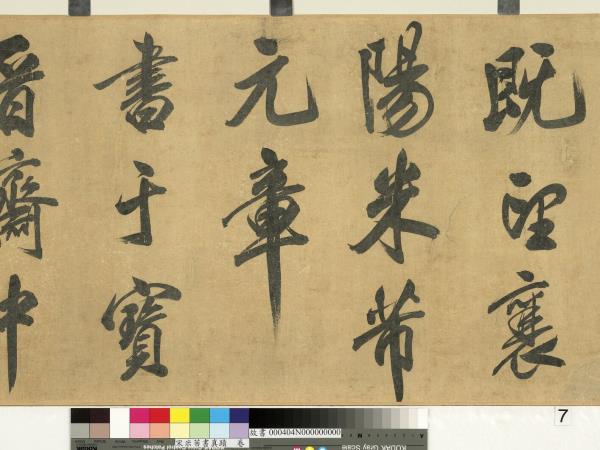 既望襄
陽米芾
元章
書于寶
晉齋中
7
宋米芾書真蹟 卷
故書 000404N000000000
KODAK Gray Scale